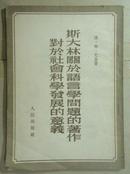 斯大林關於語言學問題的著作
對於社會科學發展的意義
人民出版社